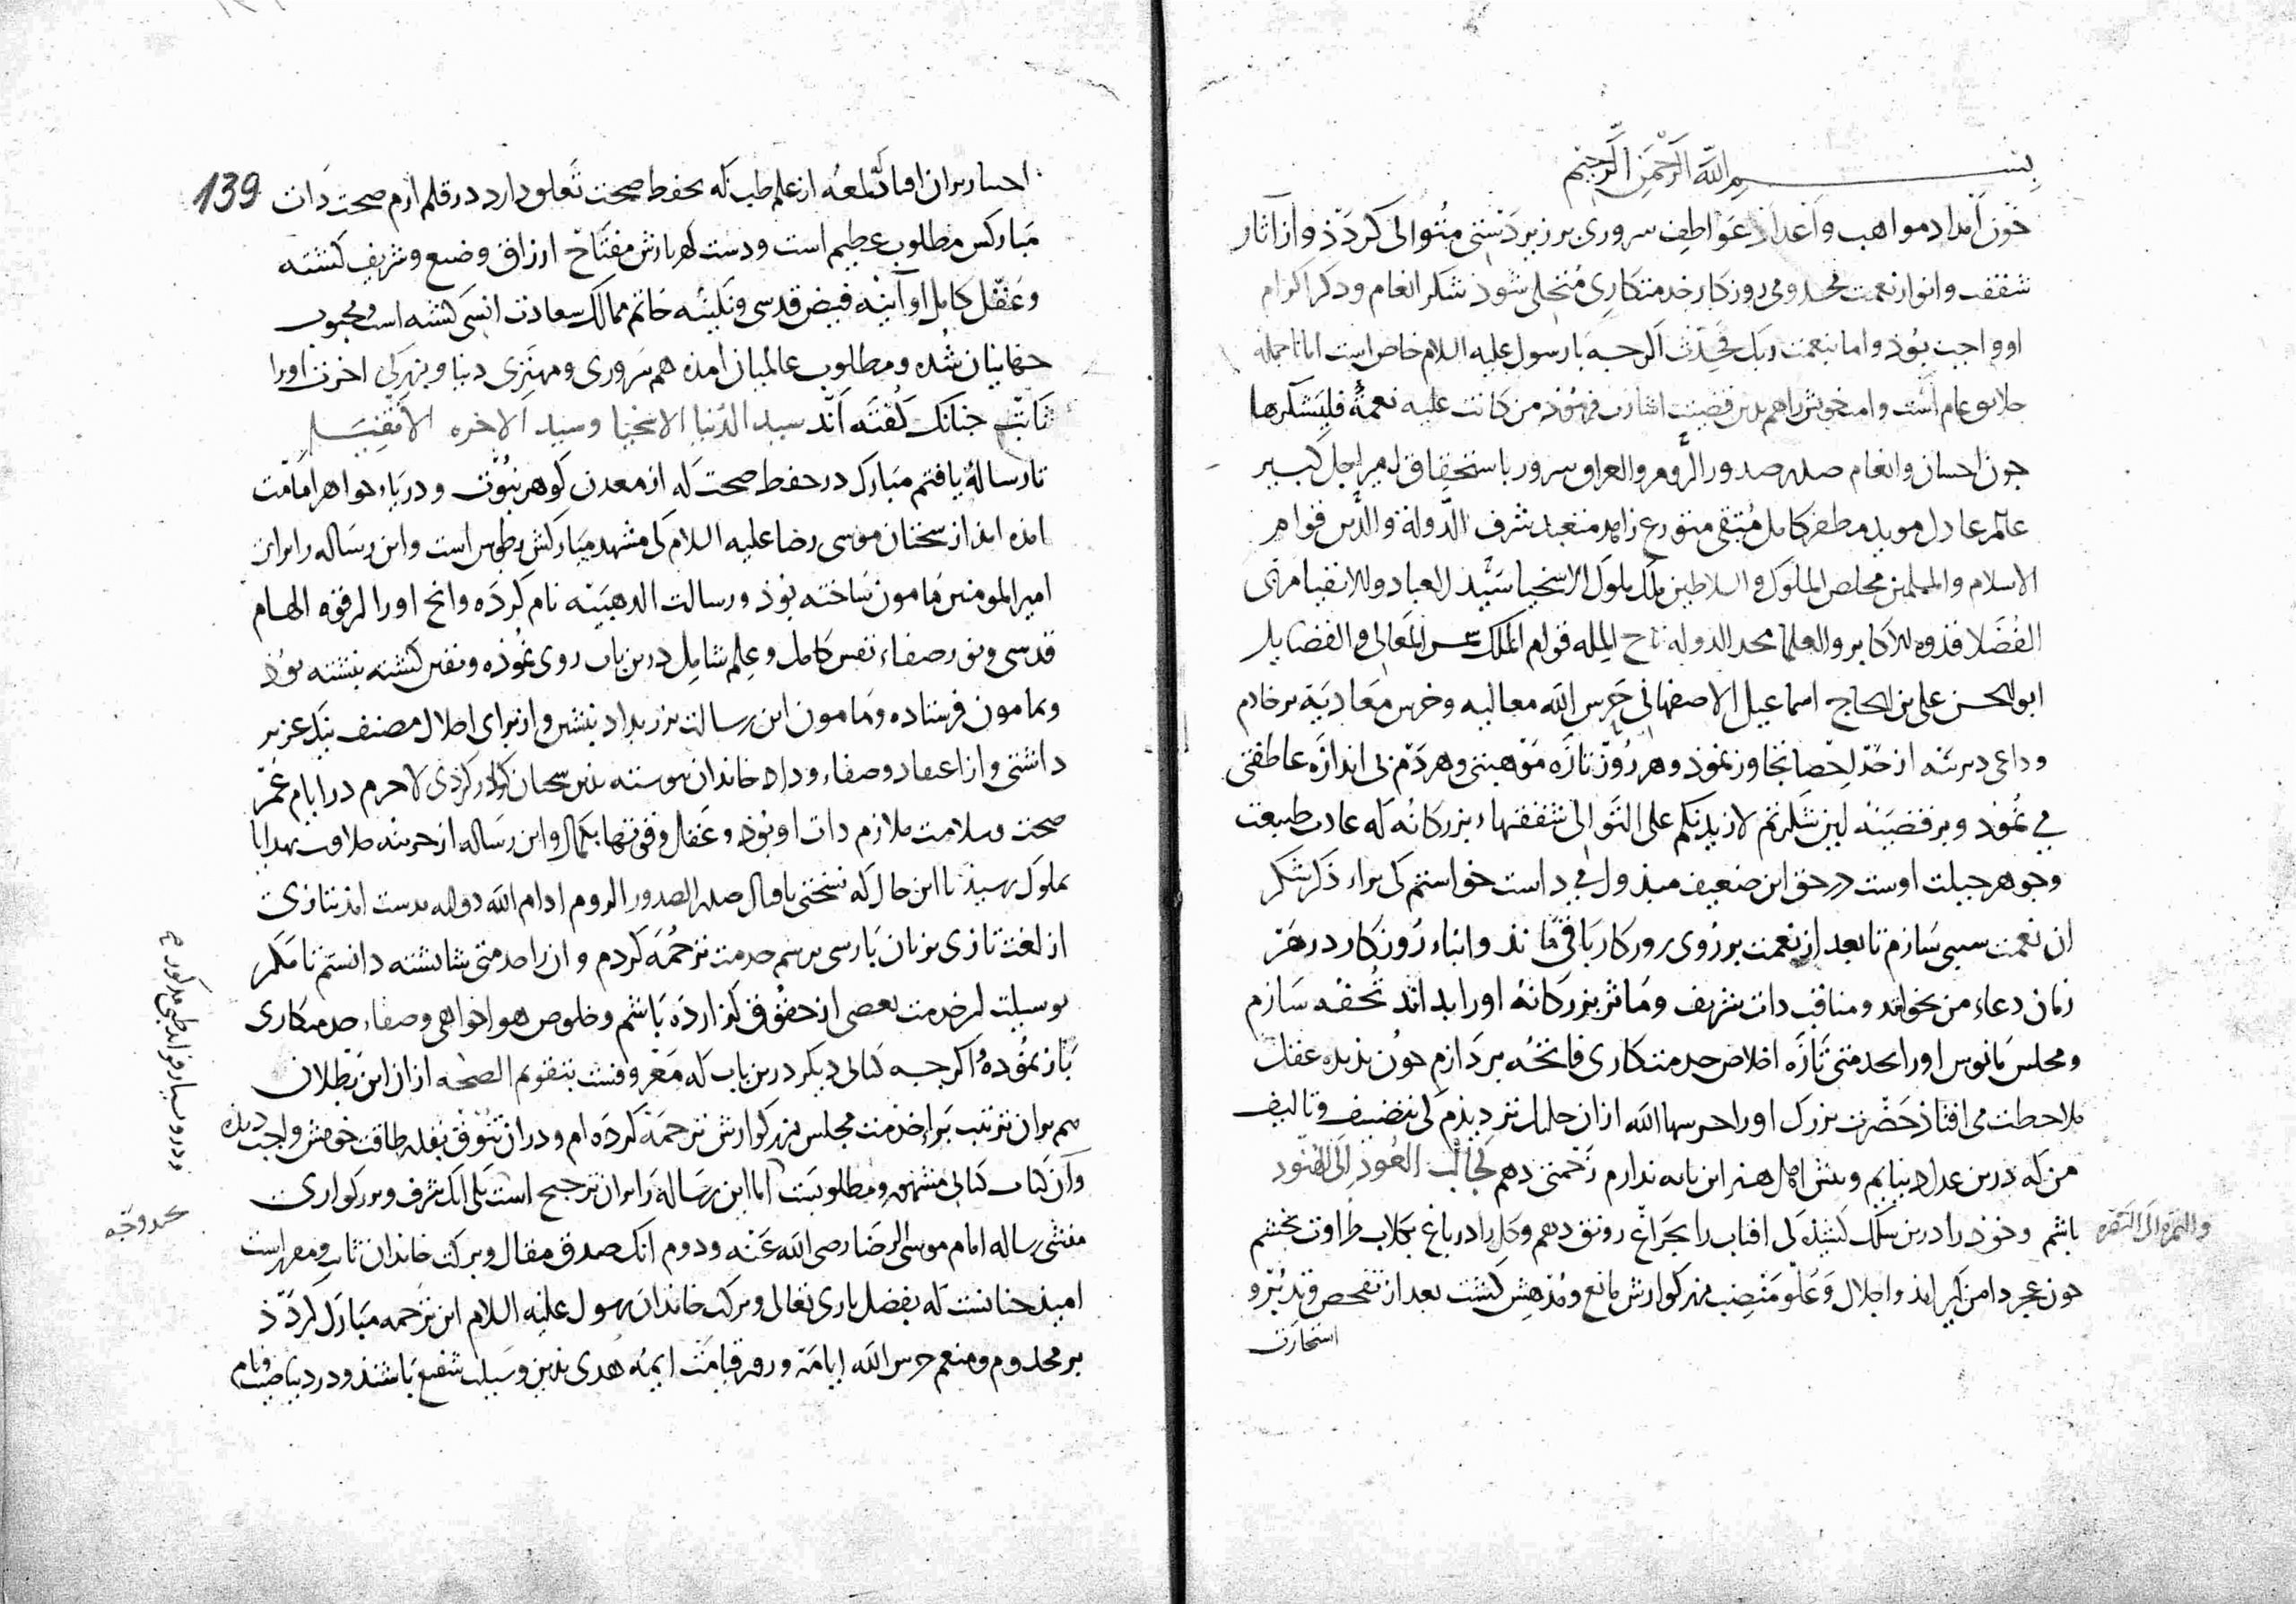 بسم الله الرحمن الرحیم
چون امداد مواهب و اعداد عواطف سروری بر زیردستی متوالی کردذ و از آثار
شفقت و انوار نعمت مخدومی روزکار خدمتکاری متجلی شوذ شکر انعام و ذکر اکرام
او واجب بوذ و اما بنعمت ربک فحدث اکرجه با رسول علیه السلام خاص است اما تا جمله
خلایق عام است و امت خویش را هم بدین قضیت اشارت فرموذ من کانت علیه نعمة فلیشکرها
جون احسان و انعام صدر صدور الروم و العراق سرور باستحقاق امیر اجل کبیر
عالم عادل موید مظفر کامل متقی متورع زاهد متعبد شرف الدولة والدین قوام
الاسلام والمسلمین مخلص الملوک والسلاطین ملک ملوک الاسخیا سید العباد والاتقیا مربی
الفضلا قدوه الاکابر والعلما مجد الدوله تاج المله قوام الملک شمس المعالی والفضایل
ابوالحسن علی بن الحاج اسماعیل الاصفهانی حرس الله معالیه وخرس معادیه بر خادم
و داعی دیرینه از حد احصا تجاوز نموذ و هر روز تازه موهبتی و هر دم بی اندازه عاطفتی
می نموذ و بر قضیه لین شکرتم لازیدنکم علی التوالی شفقتهاء بزرکانه که عادت طبیعت
وجوهر جبلت اوست در حق این ضعیف مبذول می داست خواستم کی براء ذکر شکر
ان نعمت سببی سازم تا بعد از نعمت بر روی روزکار باقی ماند و ابناء روزکار در هر
زمان دعاء من بخوانند و مناقب ذات شریف و مآثر بزرکانه او را بدانند تحفه سازم
و مجلس مانوس او را بخدمتی تازه اخلاص خدمتکاری فاتحه بردازم جون بدیده عقل
ملاحظت می افتاذ حضرت بزرک او را حرسها الله از ان جلیل تر دیذم کی بتصنیف و تالیف
من که درین عداد نیایم و بیش اهل هنر این بایه ندارم زحمتی دهم کجالب العود الی الهنود
والتمرة الی البصرة باشم و خوذ را درین سلک کشیذه کی افتاب را بجراغ رونق دهم و کل را در باغ بکلاب طراوت بخشم
جون عجز دامن کیر امذ و اجلال و علو منصب بزرکوارش مانع و مدهش کشت بعد از تفحص و تدبر و
استخارت
139
اختیار بران افتاد که لمعه از علم طب که بحفظ صحت تعلق دارد در قلم ارم صحت ذات
مبارکش مطلوب عظیم است و دست کهربارش مفتاح ارزاق وضیع و شریف کشته
و عقل کامل او آینه فیض قدسی و نکینه خاتم ممالک سعادت انسی کشته است و محبوب
جهانیان شده و مطلوب عالمیان امذه هم سروری و مهتری دنیا و بزرکی اخرت او را
ثابت جنانک کفته اند سید الدنیا الاسخیا و سید الاخره الاتقیا
تا رساله یافتم مبارک در حفظ صحت که از معدن کوهر نبوت و دریاء جواهر امامت
امذه اند از سخنان موسی رضا علیه السلام کی مشهد مبارکش بطوس است و این رساله را برای
امیر المومنین مامون ساخته بوذ و رسالت الذهبیه نام کرده وانج او را از قوه الهام
قدسی و نور صفاء نفس کامل و علم شامل درین باب روی نموذه و کشته نبشته بوذ
و بمامون فرستاده و مامون این رسالت بزر بداد نبشتن و از برای اجلال مصنف نیک عزیز
داشتی و از اعتقاد و صفاء و داد خاندان بیوسته بدین سخنان کار کردی لاجرم در ایام عمر
صحت و سلامت ملازم ذات او بوذ و عقل و قوتها بکمال و این رساله از خزینه خلافت بهدایا
بملوک رسیذ تا این حال که نسختی باقبال صدر الصدور الروم ادام الله دولته بدست امذ بتازی
از لغت تازی بزبان بارسی برسم خدمت ترجمه کردم و ان را خدمتی شایسته دانستم تا مکر
بوسیلت این خدمت بعضی از حقوق کذارده باشم و خلوص هواخواهی و صفاء خدمتکاری
باز نموده و اکرجه کتابی دیکر درین باب که معروفست بتقویم الصحه از ان ابن بطلان
هم بران ترتیب براء خدمت مجلس بزرکوارش ترجمه کرده ام و در ان تنوق بقدر طاقت خویش واجب دیده
و آن کتاب کتابی مشهور و مطلوبست اما این رساله را بران ترجیح است یکی انک شرف و بزرکواری
منشی رساله امام موسی الرضا رضی الله عنه و دوم انک صدق مقال و برکت خاندان ثابت و مقررست
امید جنانست که بفضل باری تعالی و برکت خاندان رسول علیه السلام این ترجمه مبارک کردذ
بر مخدوم و منعم حرس الله ایامه و روز قیامت ایمه هدی بدین وسیلت شفیع باشند و در دیباجه نام